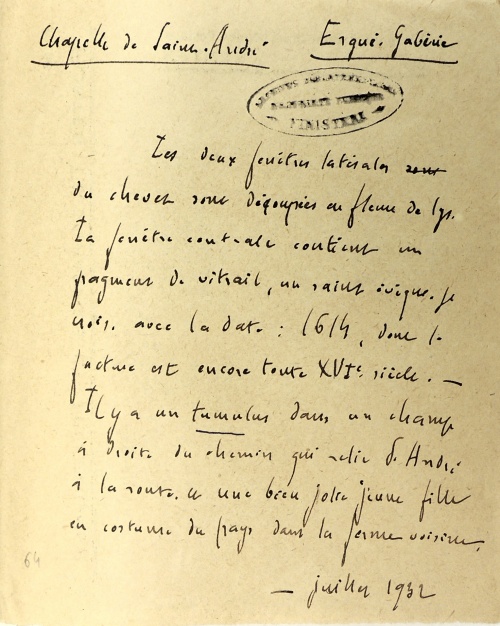 Chapelle de Saint-André Ergué-Gabéric
ARCHIVES DÉPARTEMENTALES
PROPRIÉTÉ PUBLIQUE
FINISTÈRE
Les deux fenêtres latérales sont
du chevet sont découpées en fleur de lys.
La fenêtre centrale contient un
fragment de vitrail, un saint évêque, je
crois, avec la date : 1614, dont la
facture est encore toute XVIe siècle. —
Il y a un tumulus dans un champ
à droite du chemin qui relie St André
à la route, et une bien jolie jeune fille
en costume du pays dans la ferme voisine.
— juillet 1932
64